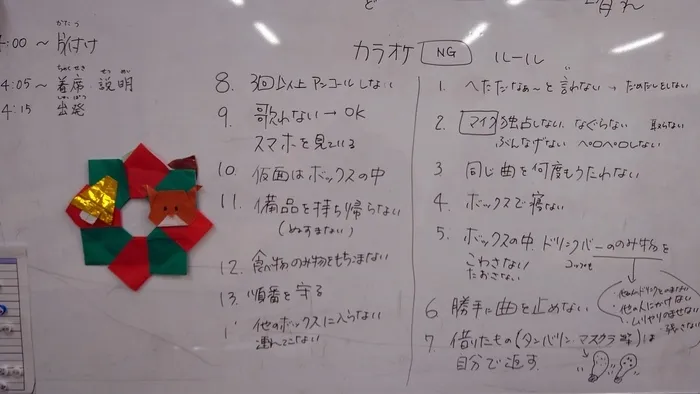 ど
晴れ
:00 ~ 片付け
かたづ
4:05~ 着席 説明
ちゃくせき せつ めい
4:15 出発
しゅっぱつ
カラオケ NG ルール
1. へただなぁ~と言わない →
2. マイク 独占しない なぐらない
ぶんなげない ペロペロしない
3. 同じ曲を何度もうたわない
4. ボックスで寝ない
5. ボックスの中 ドリンクバーののみ物を
こわさない コップを
たおさない
・他の人にかけない
・ムリヤリのませない
6. 勝手に曲を止めない
7. 借りたもの(タンバリン マスクラ 等)は
自分で返す
8. 3回以上アンコールしない
9. 歌わない → OK
スマホを見ている
10. 仮面はボックスの中
11. 備品を持ち帰らない
(ぬすまない)
12. 食べ物のみ物をもちこまない
13. 順番を守る
1 他のボックスに入らない
連れてこない